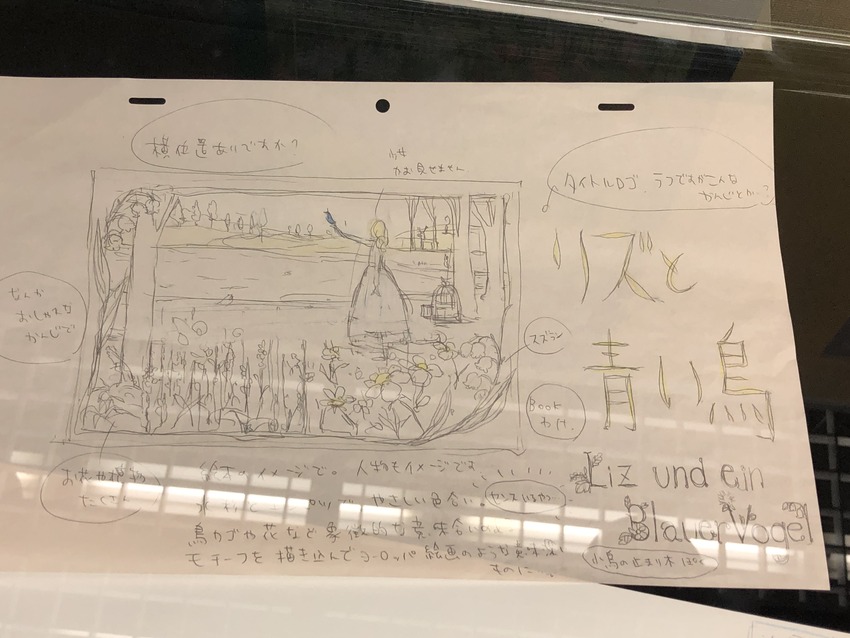 横位置ありですね?
かお見せません
タイトルロゴ、ラフですがこんな
かんじとか…?
リズと
青い鳥
なんか
おしゃれな
かんじで
スズラン
BOOK
わけ。
お花や植物
たくさん
絵本のイメージで。人物もイメージです
やさしい色合い。
鳥カゴや花など象徴的な意味合いの
モチーフを描き込んでヨーロッパ絵画のような
ものに…。
Liz und ein
Blauer Vogel
小鳥の止まり木ぽく